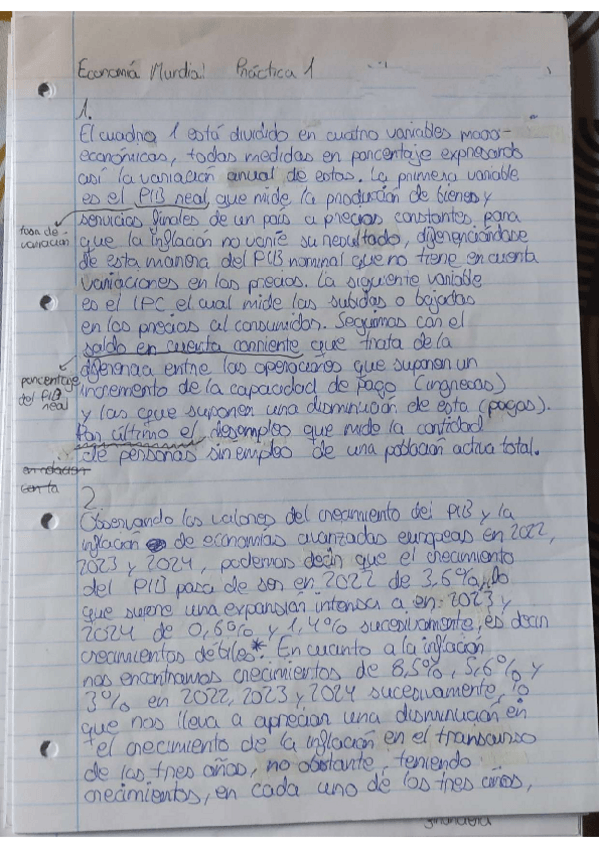 Economía Mundial Práctica 1
1.
El cuadro 1 está dividido en cuatro variables macro-
económicas, todas medidas en porcentaje expresando
así la variación anual de estas. La primera variable
es el PIB real, que mide la producción de bienes y
servicios finales de un país a precios constantes, para
tasa de variación
que la inflación no varíe su resultado, diferenciándose
de esta manera del PIB nominal que no tiene en cuenta
variaciones en los precios. La siguiente variable
es el IPC el cual mide las subidas o bajadas
en los precios al consumidor. Seguimos con el
saldo en cuenta corriente que trata de la
diferencia entre las operaciones que suponen un
porcentaje del PIB real
incremento de la capacidad de pago (ingresos)
y las que suponen una disminución de esta (pagos).
Por último el desempleo que mide la cantidad
de personas sin empleo de una población activa total.
en relación
con la
2.
Observando los valores del crecimiento del PIB y la
inflación de economías avanzadas europeas en 2022,
2023 y 2024, podemos decir que el crecimiento
del PIB pasa de ser en 2022 de 3,6%, lo
que supone una expansión intensa a en 2023 y
2024 de 0,6% y 1,4% sucesivamente, es decir
crecimientos débiles*. En cuanto a la inflación
nos encontramos crecimientos de 8,5%, 5,6% y
3% en 2022, 2023 y 2024 sucesivamente, lo
que nos lleva a apreciar una disminución en
el crecimiento de la inflación en el transcurso
de los tres años, no obstante, teniendo
crecimientos, en cada uno de los tres años,
financiera